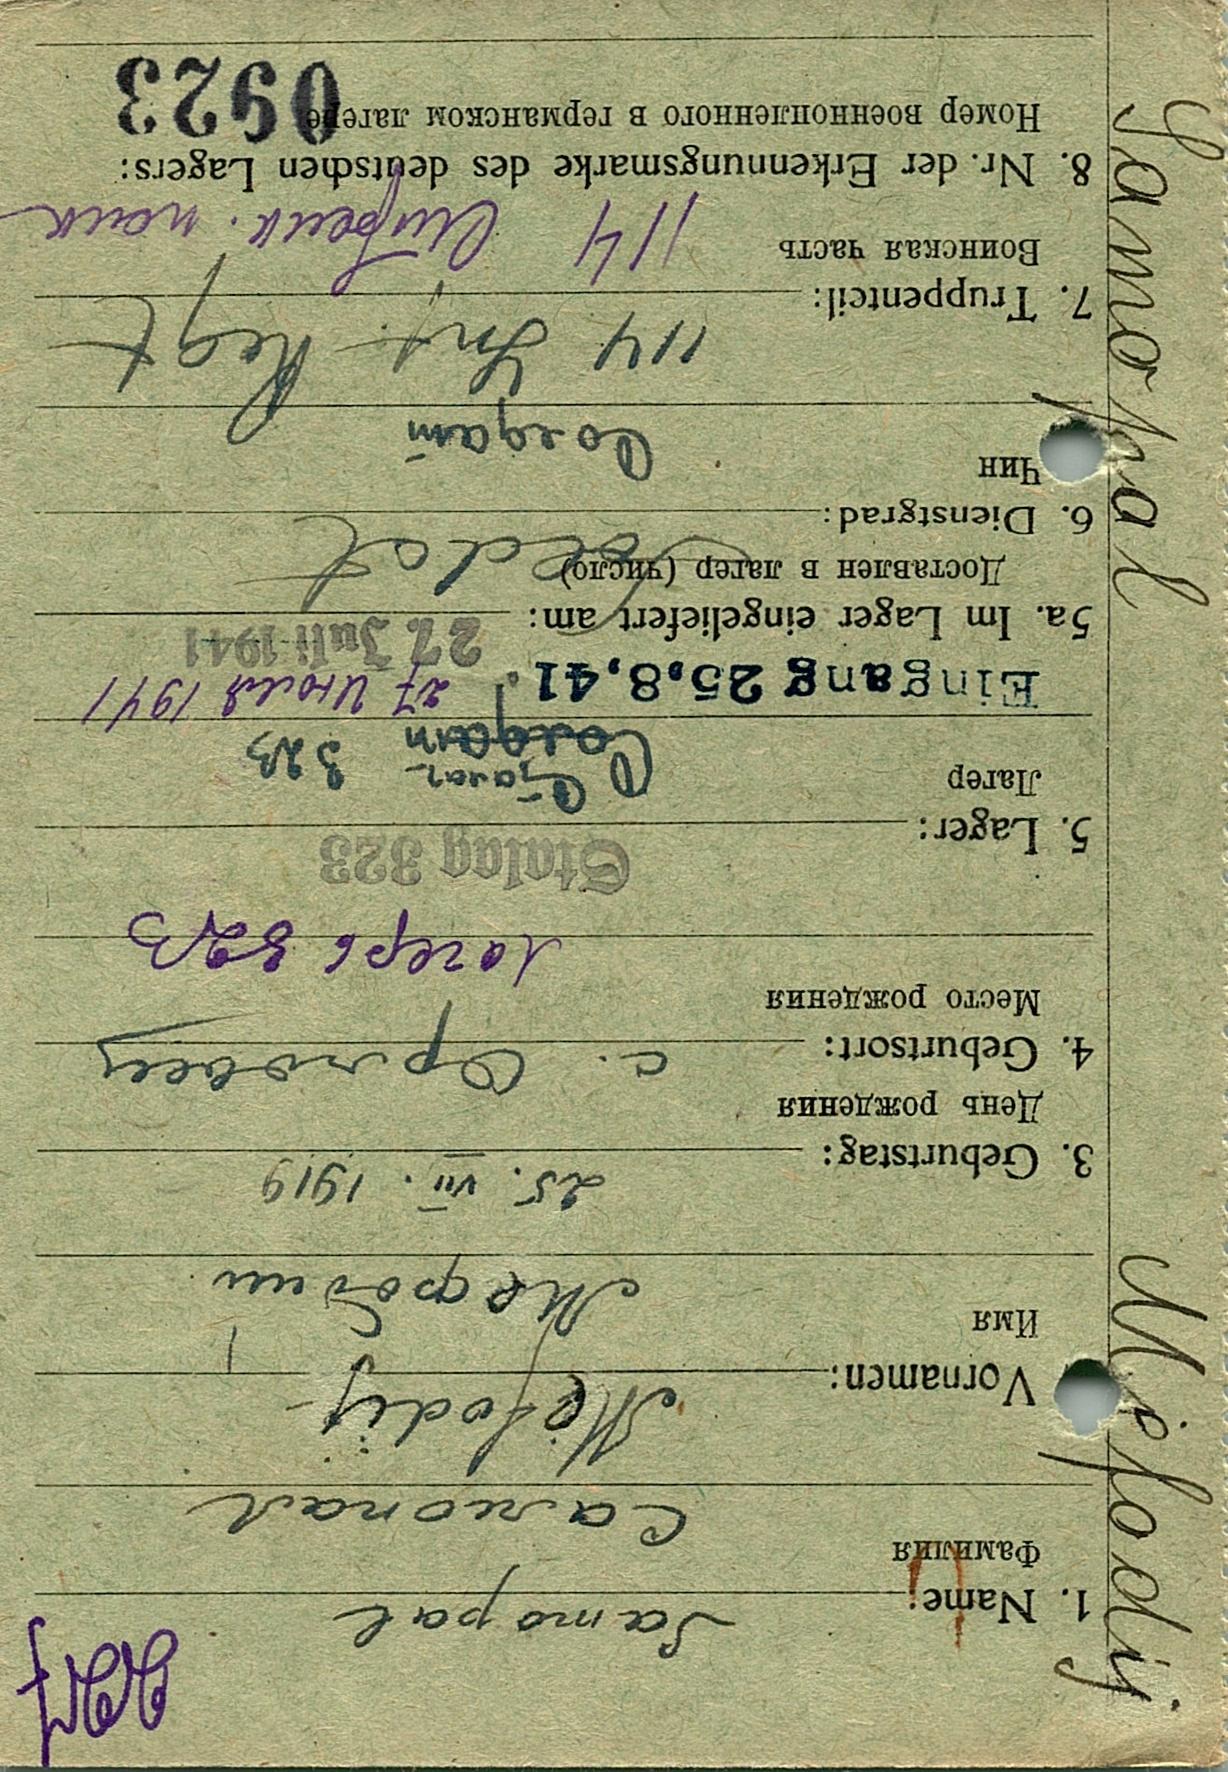 Samopal
1. Name:
Фамилия
Самопал
Mefodij
Vornamen:
Имя
Мефодий
25. VII. 1919
3. Geburtstag:
День рождения
4. Geburtsort:
с.
Место рождения
Лагерь 323
Stalag 323
5. Lager:
Лагер
Сталаг 323
Солдат
27 Июля 1941
Eingang 25,8,41.
27. Juli 1941
5a. Im Lager eingeliefert am:
Доставлен в лагер (число)
Soldat
6. Dienstgrad:
Чин
Солдат
114 Inf. Regt
7. Truppenteil:
Воинская часть
114 полк
8. Nr. der Erkennungsmarke des deutschen Lagers:
Номер военнопленного в германском лагере
0923
Samopal Mefodij